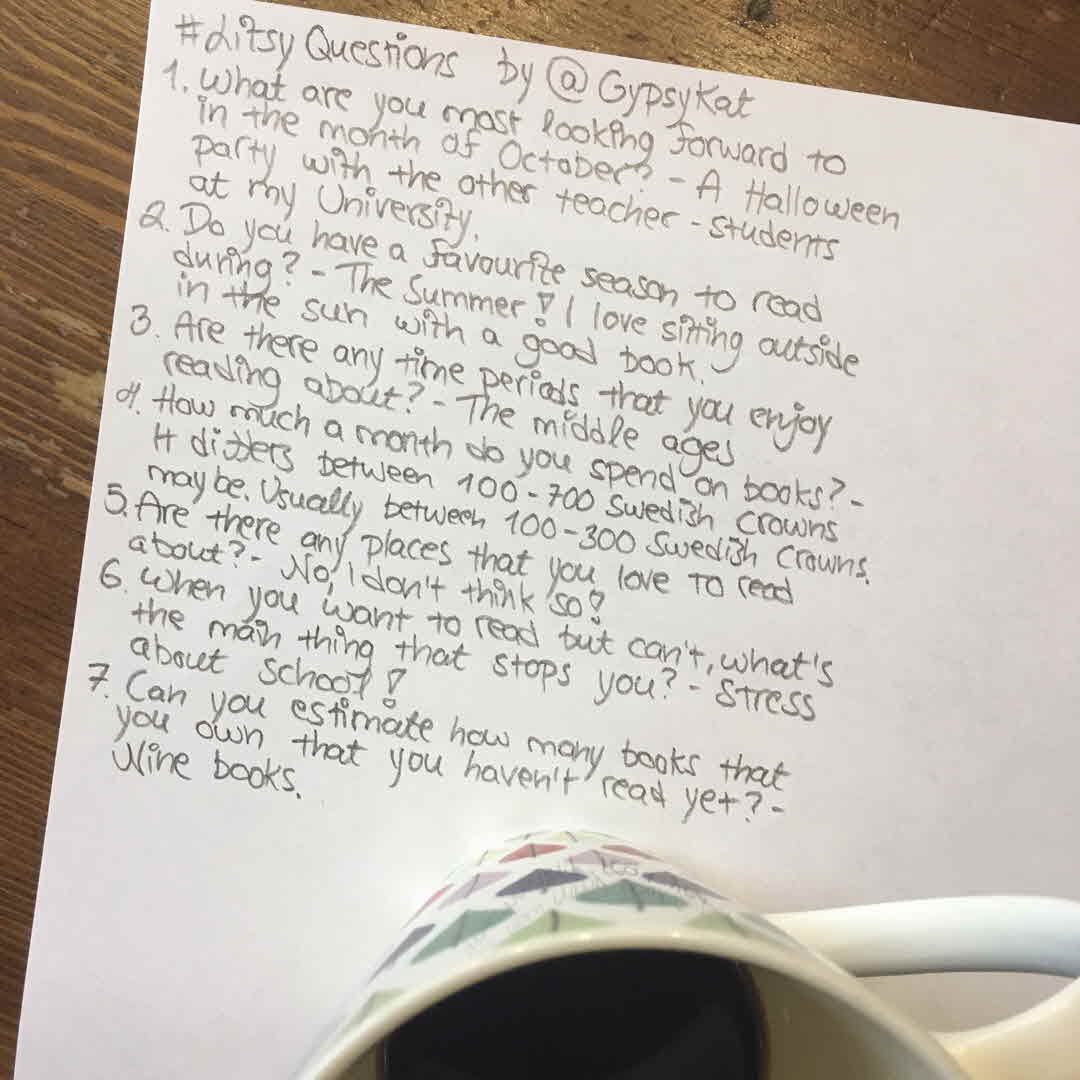 #Litsy Questions by @GypsyKat
1. What are you most looking forward to
in the month of October? - A Halloween
party with the other teacher-students
at my University.
2. Do you have a favourite season to read
during? - The Summer! I love sitting outside
in the sun with a good book.
3. Are there any time periods that you enjoy
reading about? - The middle ages
4. How much a month do you spend on books? -
It differs between 100-700 Swedish crowns
maybe. Usually between 100-300 Swedish Crowns.
5. Are there any places that you love to read
about? - No, I don't think so!
6. When you want to read but can't, what's
the main thing that stops you? - Stress
about School!
7. Can you estimate how many books that
you own that you haven't read yet? -
Nine books.